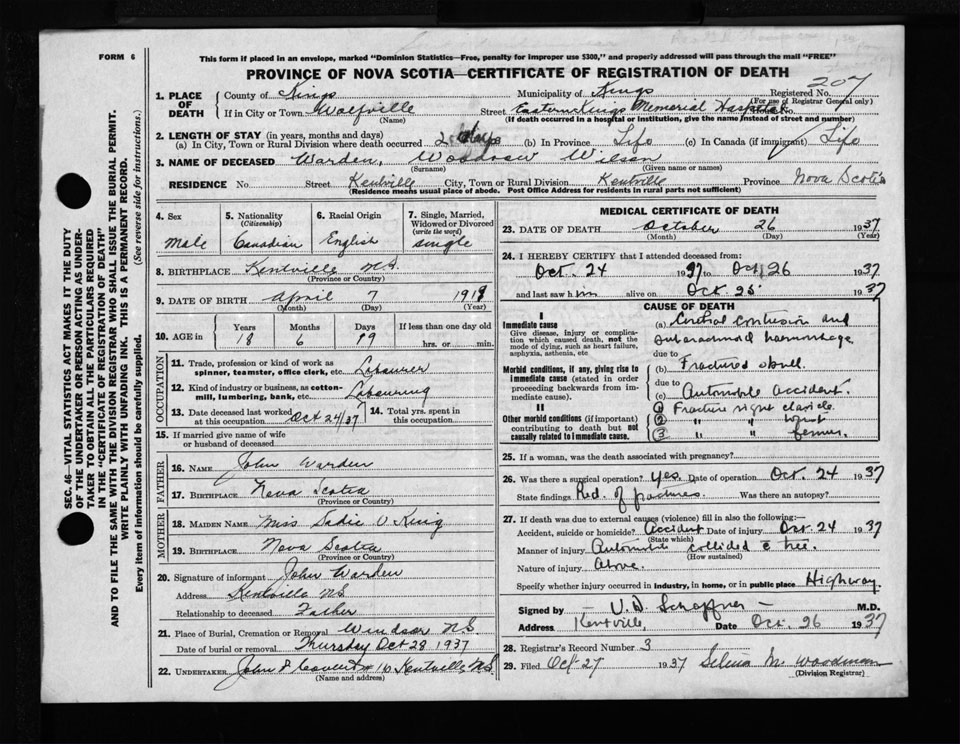 FORM 6
This form if placed in an envelope, marked "Dominion Statistics—Free, penalty for improper use $300," and properly addressed will pass through the mail "FREE"
PROVINCE OF NOVA SCOTIA—CERTIFICATE OF REGISTRATION OF DEATH
SEC. 46—VITAL STATISTICS ACT MAKES IT THE DUTY
OF THE UNDERTAKER OR PERSON ACTING AS UNDER-
TAKER TO OBTAIN ALL THE PARTICULARS REQUIRED
IN THE "CERTIFICATE OF REGISTRATION OF DEATH"
AND TO FILE THE SAME WITH THE DIVISION REGISTRAR WHO SHALL ISSUE THE BURIAL PERMIT.
WRITE PLAINLY WITH UNFADING INK. THIS IS A PERMANENT RECORD.
Every item of information should be carefully supplied. (See reverse side for instructions.)
1. PLACE OF DEATH County of Kings Municipality of Kings Registered No. 207
(For use of Registrar General only)
If in City or Town Wolfville Street Eastern Kings Memorial Hospital No.
(Name) (If death occurred in a hospital or institution, give the name instead of street and number)
2. LENGTH OF STAY (in years, months and days)
(a) In City, Town or Rural Division where death occurred 2 days (b) In Province Life (c) In Canada (if immigrant) Life
3. NAME OF DECEASED Warden, Woodrow Wilson
(Surname) (Given name or names)
RESIDENCE No Street Kentville City, Town or Rural Division Kentville Province Nova Scotia
(Residence means usual place of abode. Post Office Address for residents in rural parts not sufficient)
4. Sex Male 5. Nationality (Citizenship) Canadian 6. Racial Origin English 7. Single, Married, Widowed or Divorced (write the word) single
8. BIRTHPLACE Kentville N.S.
(Province or Country)
9. DATE OF BIRTH April 7 1919
(Month) (Day) (Year)
10. AGE in Years 18 Months 6 Days 19 If less than one day old hrs. or min.
OCCUPATION
11. Trade, profession or kind of work as spinner, teamster, office clerk, etc. Labourer
12. Kind of industry or business, as cotton-mill, lumbering, bank, etc. Labouring
13. Date deceased last worked at this occupation Oct 24/37 14. Total yrs. spent in this occupation
15. If married give name of wife or husband of deceased
FATHER
16. NAME John Warden
17. BIRTHPLACE Nova Scotia
(Province or Country)
MOTHER
18. MAIDEN NAME Miss Sadie V. King
19. BIRTHPLACE Nova Scotia
(Province or Country)
20. Signature of informant John Warden
Address Kentville NS
Relationship to deceased Father
21. Place of Burial, Cremation or Removal Windsor N.S.
Date of burial or removal Thursday Oct 28 1937
22. UNDERTAKER Kentville N.S.
(Name and address)
MEDICAL CERTIFICATE OF DEATH
23. DATE OF DEATH October 26 1937
(Month) (Day) (Year)
24. I HEREBY CERTIFY that I attended deceased from:
Oct 24 1937 to Oct 26 1937
and last saw him alive on Oct. 25 1937
CAUSE OF DEATH
I
Immediate cause
Give disease, injury or complication which caused death, not the mode of dying, such as heart failure, asphyxia, asthenia, etc
(a) Cerebral contusion and
subarachnoid haemorrhage
due to
Morbid conditions, if any, giving rise to immediate cause (stated in order proceeding backwards from immediate cause).
(b) Fractured skull.
due to
(c) Automobile accident.
II
Other morbid conditions (if important) contributing to death but not causally related to immediate cause.
1 Fracture right clavicle
2 " " wrist
3 " " femur.
25. If a woman, was the death associated with pregnancy?
26. Was there a surgical operation? Yes. Date of operation Oct. 24 1937
State findings Red. of fractures. Was there an autopsy?
27. If death was due to external causes (violence) fill in also the following:—
Accident, suicide or homicide? Accident Date of injury Oct. 24 1937
(State which)
Manner of injury Automobile collided c tree.
(How sustained)
Nature of injury Above.
Specify whether injury occurred in industry, in home, or in public place Highway.
Signed by V. D. Schaffner M.D.
Address Kentville, Date Oct. 26 1937
28. Registrar's Record Number 3
29. Filed Oct 27 1937 Selena M. Woodman
(Division Registrar)